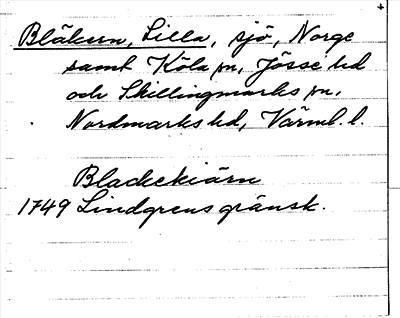 Bläkurn, Lilla, sjö, Norge
samt Köla sn, Jösse hd
och Skillingmarks sn,
Nordmarks hd, Värml. l.
Blackekiärn
1749 Lindgrens gränsk.